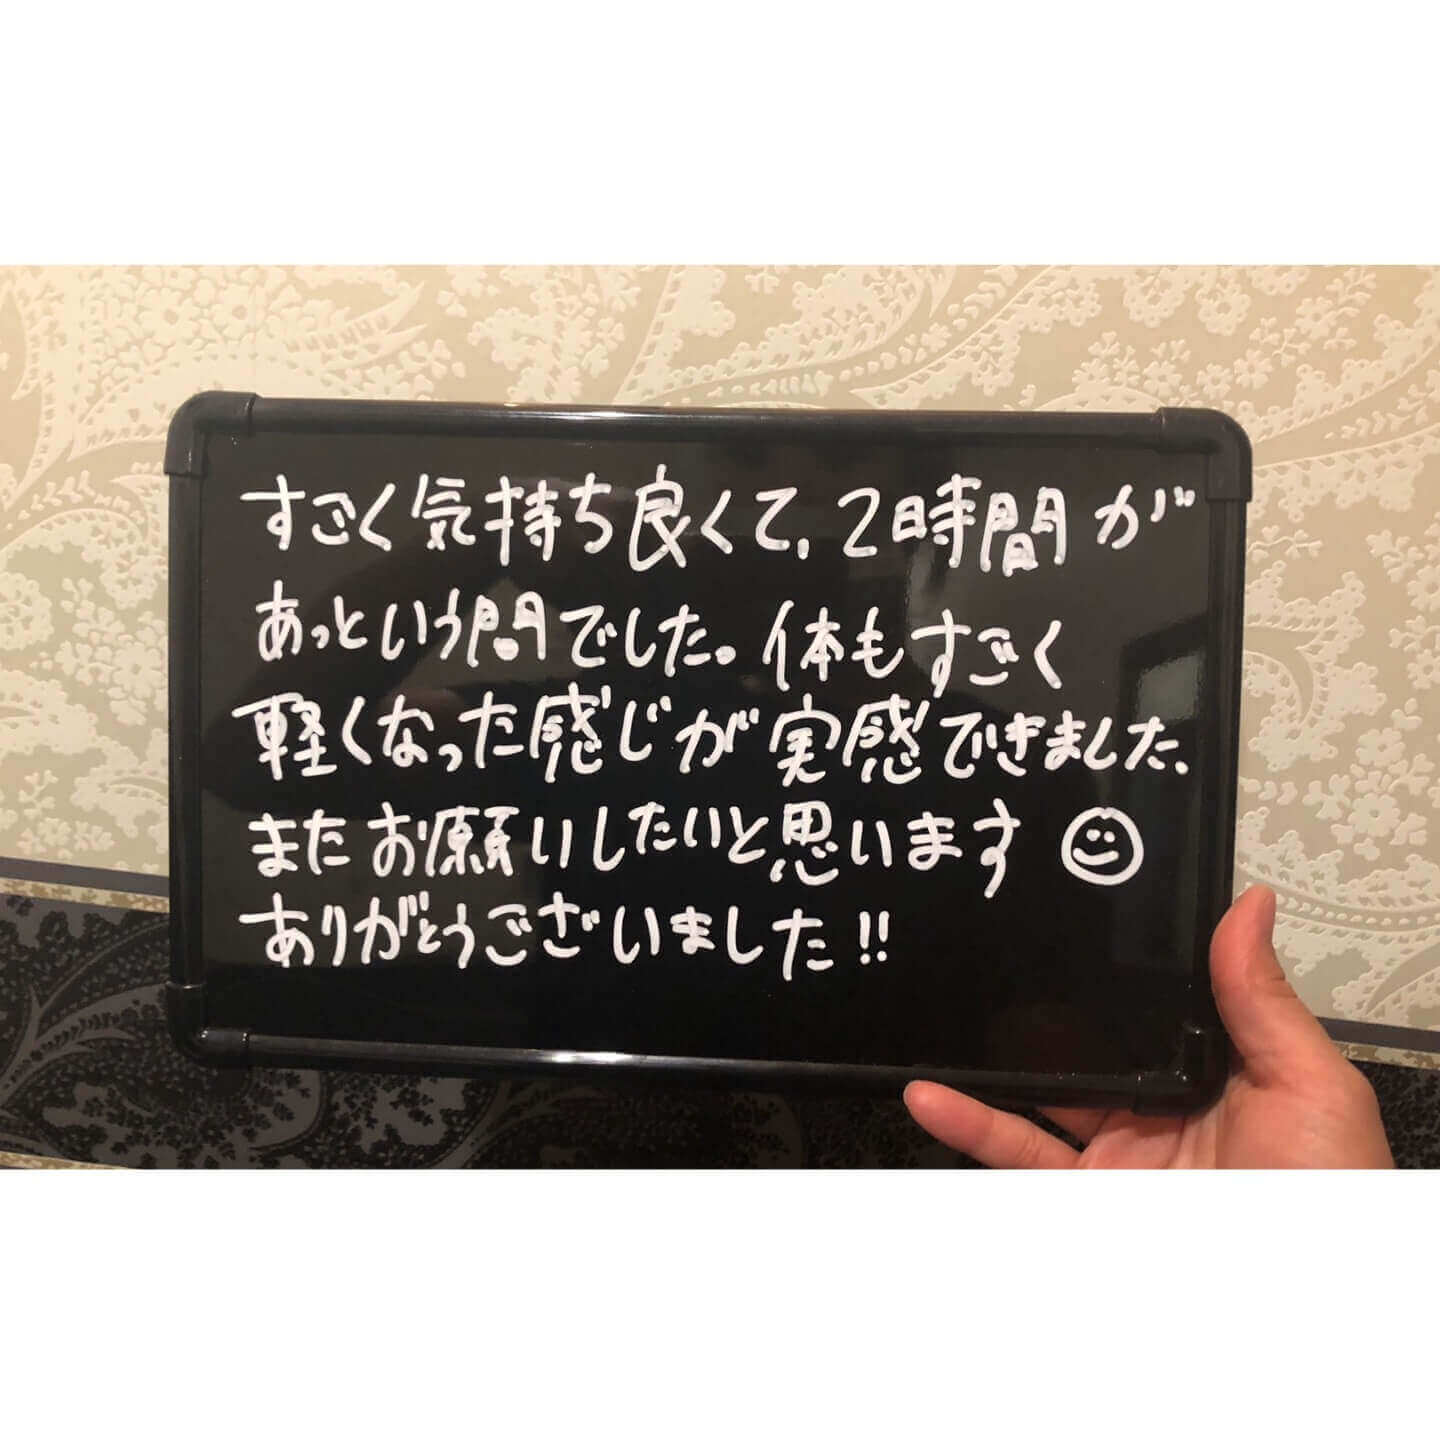 すごく気持ち良くて、2時間が
あっという間でした。体もすごく
軽くなった感じが実感できました、
またお願いしたいと思います
ありがとうございました!!